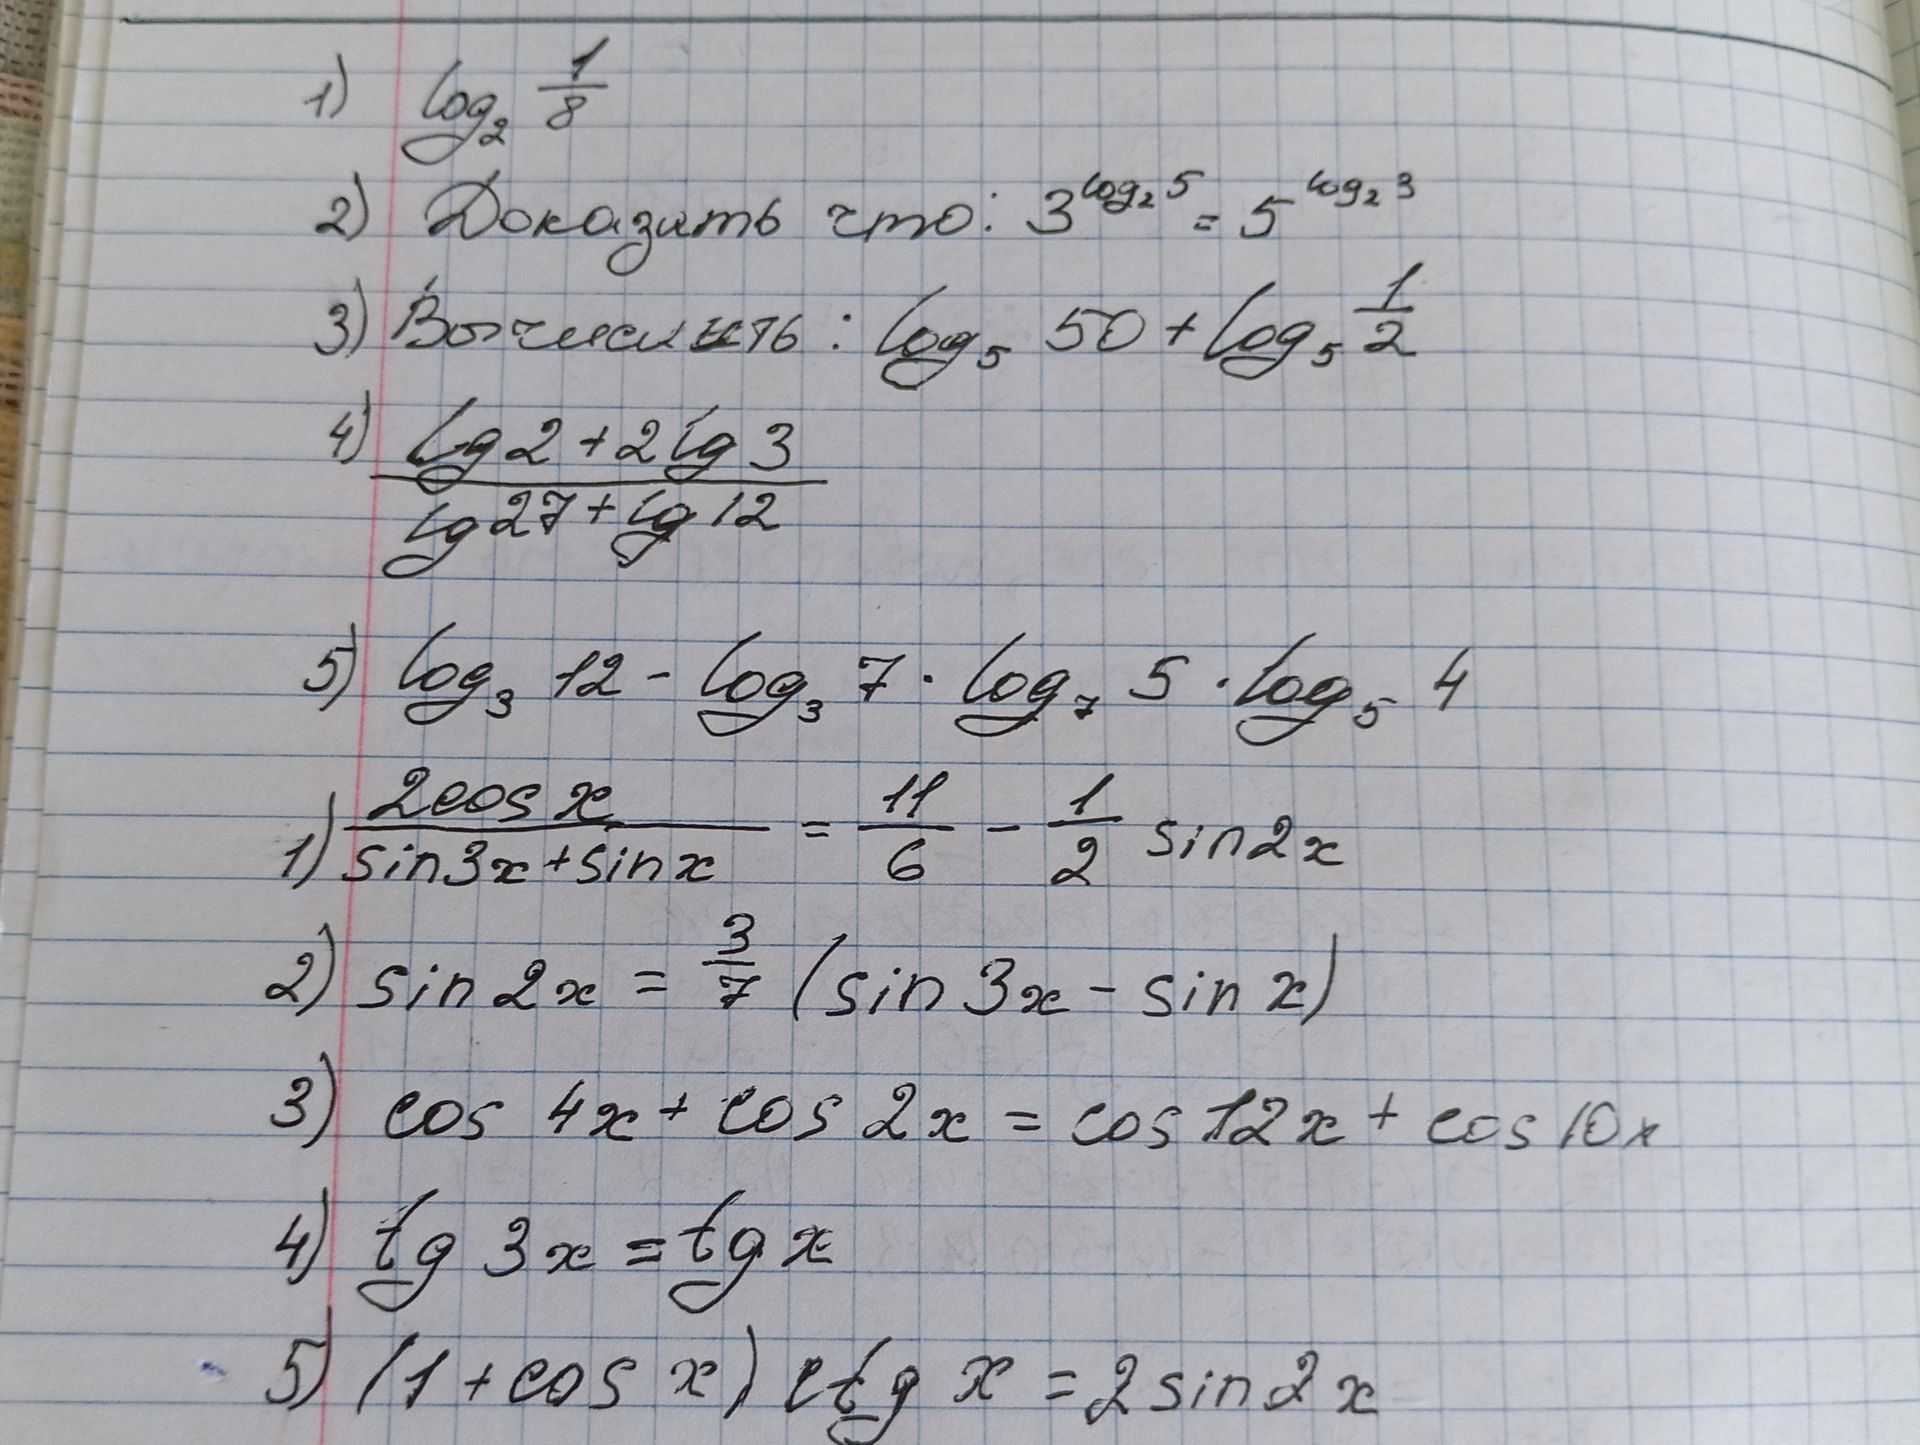 1) log₂ 1/8
2) Доказать что: 3^(log₂ 5) = 5^(log₂ 3)
3) Вычислить: log₅ 50 + log₅ 1/2
4) (lg 2 + 2 lg 3)/(lg 27 + lg 12)
5) log₃ 12 - log₃ 7 · log₇ 5 · log₅ 4
1) 2cos x/(sin 3x + sin x) = 11/6 - 1/2 sin 2x
2) sin 2x = 3/7 (sin 3x - sin x)
3) cos 4x + cos 2x = cos 12x + cos 10x
4) tg 3x = tg x
5) (1 + cos x) ctg x = 2 sin 2x